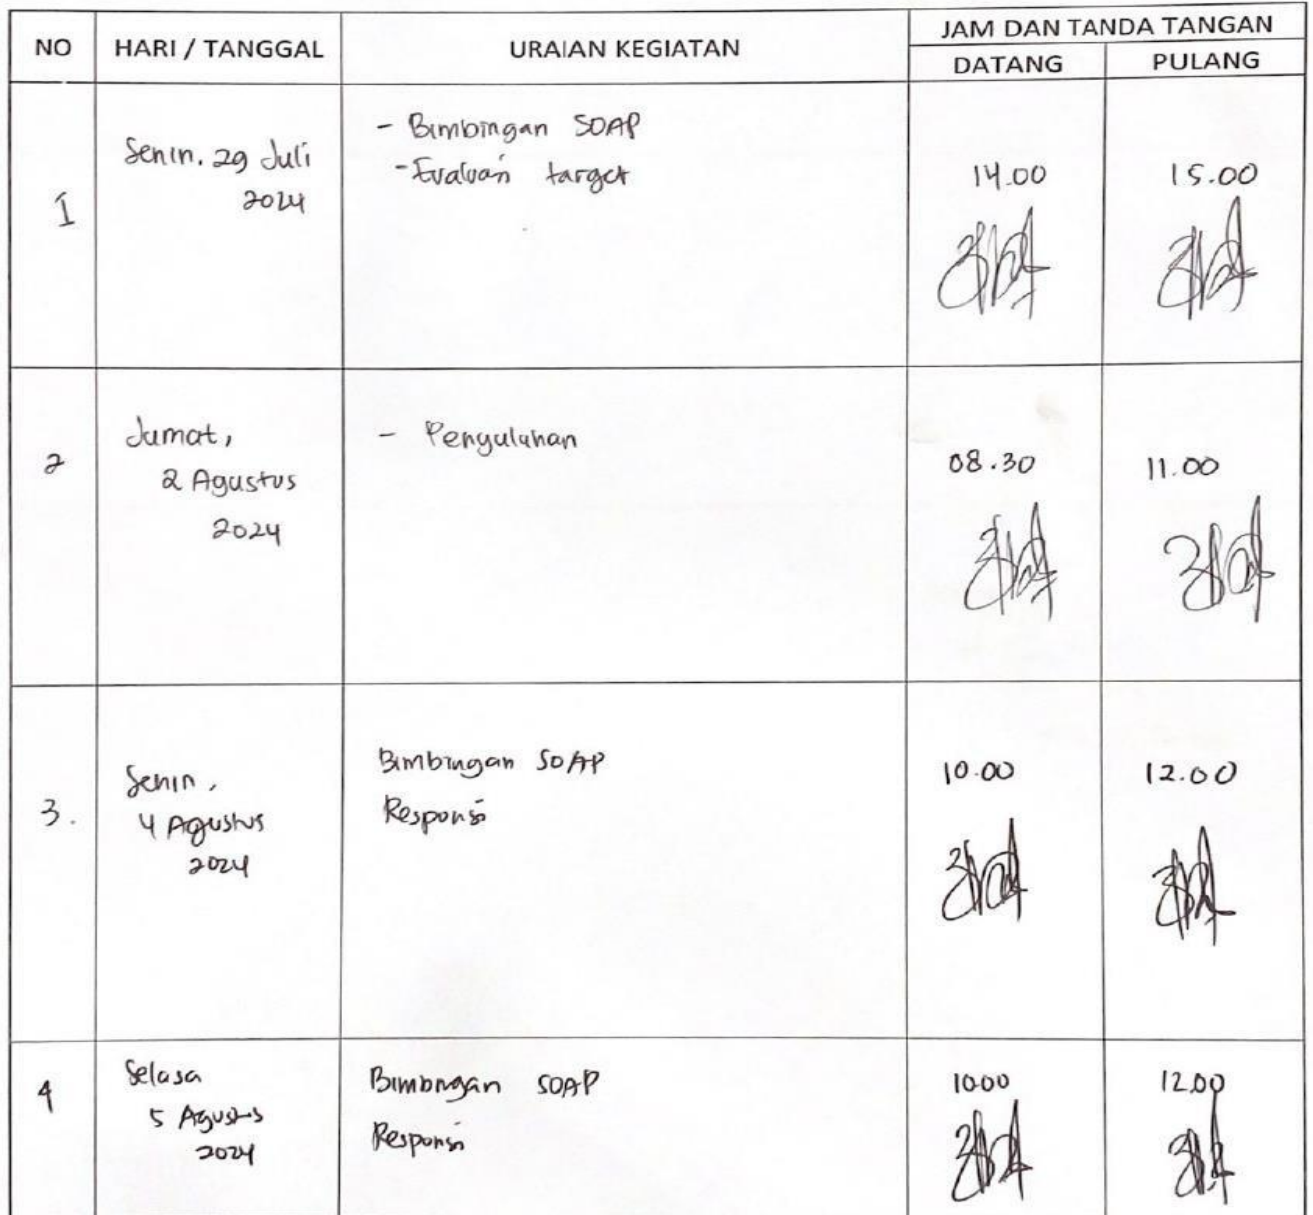 NO HARI / TANGGAL URAIAN KEGIATAN JAM DAN TANDA TANGAN
DATANG PULANG
1 Senin, 29 Juli 2024
- Bimbingan SOAP
- Evaluasi target
14.00 15.00
2 Jumat,
2 Agustus
2024
- Penyuluhan
08.30 11.00
3. Senin,
4 Agustus
2024
Bimbingan SOAP
Responsi
10.00 12.00
4 Selasa
5 Agustus
2024
Bimbingan SOAP
Responsi
10.00 12.00